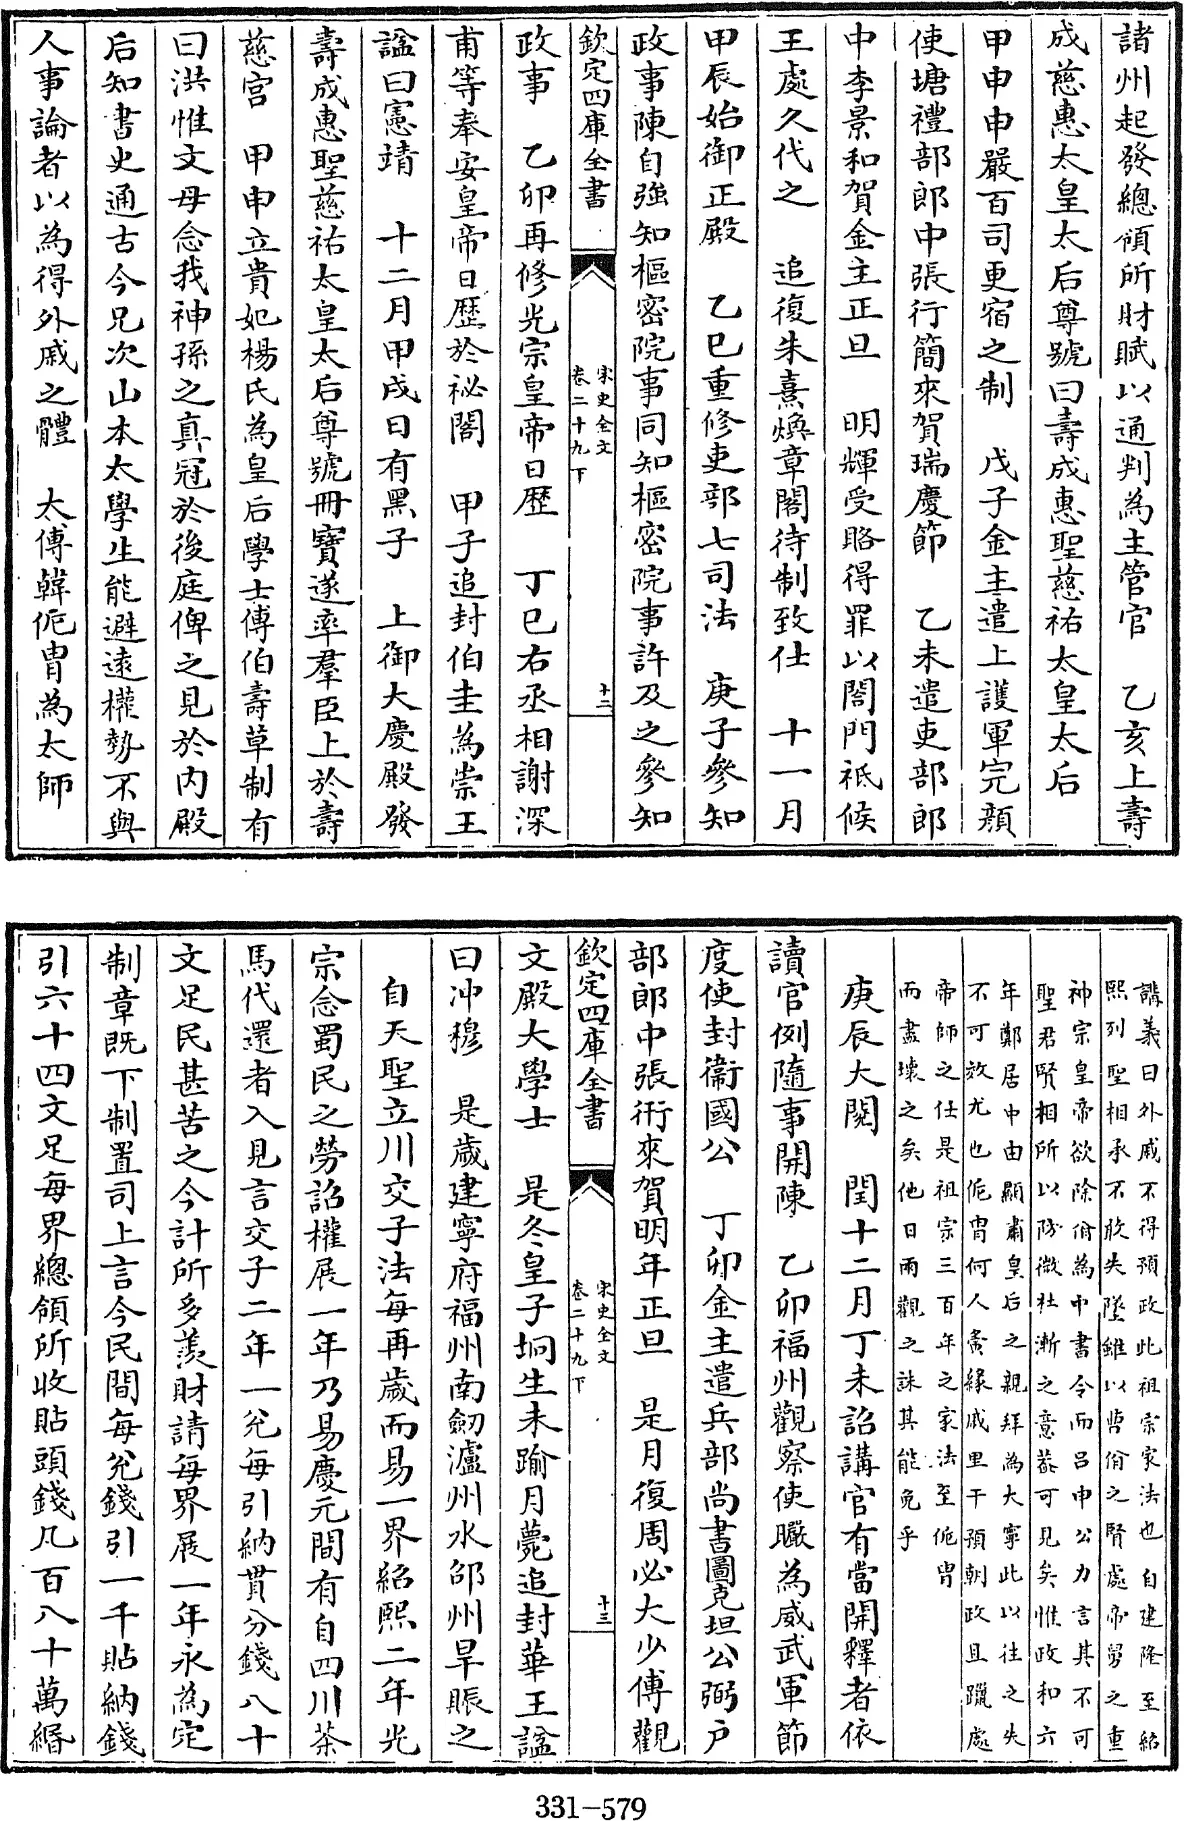 諸州起發總領所財賦以通判為主管官　乙亥上壽
成慈惠太皇太后尊號曰壽成惠聖慈祐太皇太后
甲申申嚴百司更宿之制　戊子金主遣上護軍完顔
使塘禮部郎中張行簡來賀瑞慶節　乙未遣吏部郎
中李景和賀金主正旦　明輝受賂得罪以閤門祗候
王處久代之　追復朱熹煥章閣待制致仕　十一月
甲辰始御正殿　乙巳重修吏部七司法　庚子參知
政事陳自強知樞密院事同知樞密院事許及之參知
欽定四庫全書
宋史全文
卷二十九下
十二
政事　乙卯再修光宗皇帝日歷　丁巳右丞相謝深
甫等奉安皇帝日歷於祕閣　甲子追封伯圭為崇王
諡曰憲靖　十二月甲戌日有黑子　上御大慶殿發
壽成惠聖慈祐太皇太后尊號冊寶遂率羣臣上於壽
慈宮　甲申立貴妃楊氏為皇后學士傅伯壽草制有
曰洪惟文母念我神孫之真冠於後庭俾之見於内殿
后知書史通古今兄次山本太學生能避遠權勢不與
人事論者以為得外戚之體　太傅韓侂胄為太師
講義曰外戚不得預政此祖宗家法也自建隆至紹
熙列聖相承不敢失墜雖以曹佾之賢處帝舅之重
神宗皇帝欲除佾為中書令而呂申公力言其不可
聖君賢相所以防微杜漸之意葢可見矣惟政和六
年鄭居中由顯肅皇后之親拜為大寧此以往之失
不可效尤也侂胄何人夤緣戚里干預朝政且躐處
帝師之任是祖宗三百年之家法至侂胄
而盡壊之矣他日兩觀之誅其能免乎
庚辰大閱　閏十二月丁未詔講官有當開釋者依
讀官例隨事開陳　乙卯福州觀察使曮為威武軍節
度使封衞國公　丁卯金主遣兵部尚書圖克坦公弼户
部郎中張衎來賀明年正旦　是月復周必大少傅觀
欽定四庫全書
宋史全文
卷二十九下
十三
文殿大學士　是冬皇子坰生未踰月薨追封華王諡
曰冲穆　是歲建寧府福州南劒瀘州水邵州旱賑之
自天聖立川交子法每再歲而易一界紹熙二年光
宗念蜀民之勞詔權展一年乃易慶元間有自四川茶
馬代還者入見言交子二年一兊每引納貫分錢八十
文足民甚苦之今計所多羨財請每界展一年永為定
制章既下制置司上言今民間每兊錢引一千貼納錢
引六十四文足每界總領所收貼頭錢凡百八十萬緡
331-579